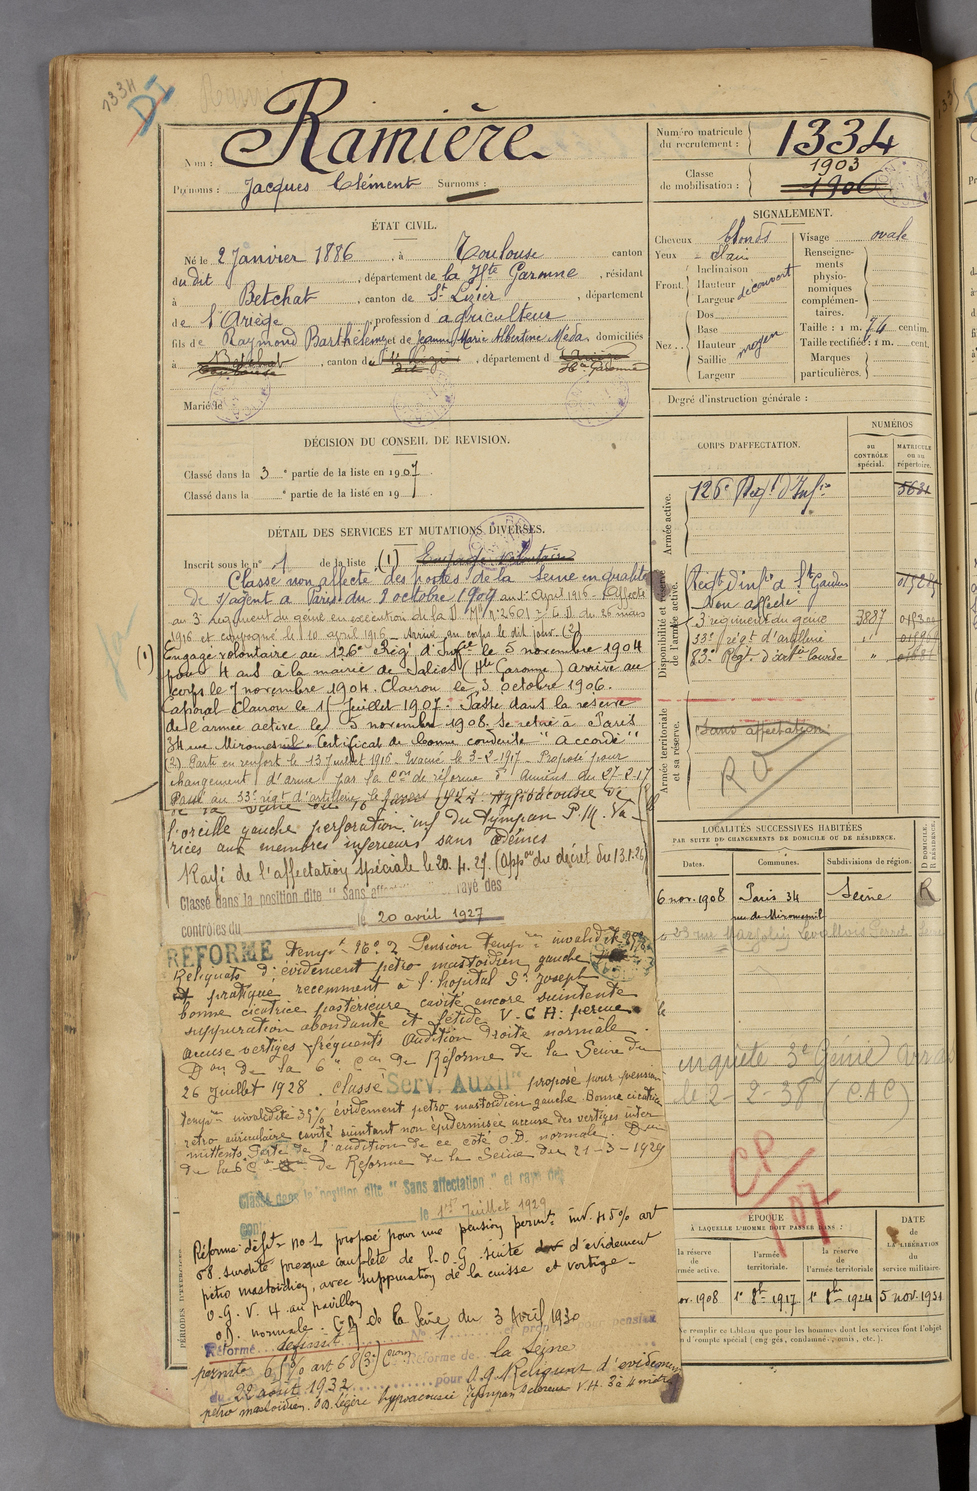 1334
DI
Nom : Ramière
Prénoms : Jacques Clément Surnoms :
Numéro matricule du recrutement : 1334
Classe de mobilisation : 1903
1906
ÉTAT CIVIL.
Né le 2 Janvier 1886, à Toulouse canton
du dit, département de la Hte Garonne, résidant
à Betchat, canton de St Lizier, département
de l'Ariège, profession d'agriculteur
fils de Raymond Barthélémy et de Jeanne Marie Albertine Méda domiciliés
à Betchat, canton du, département d
Marié le
DÉCISION DU CONSEIL DE REVISION.
Classé dans la 3e partie de la liste en 1907.
Classé dans la e partie de la liste en 19
DÉTAIL DES SERVICES ET MUTATIONS DIVERSES.
Inscrit sous le n° 1 de la liste (1) Engagé volontaire
Classé non affecté des postes de la Seine en qualité
de s/agent à Paris du 8 octobre 1909 au 1er April 1916 - Affecté
au 3e Régiment du génie en exécution de la D. Mlle N° 2601 du 26 mars
1916 et convoqué le 10 avril 1916 - Arrivé au corps le dit jour. (2)
(1) Engagé volontaire au 126e Rég. d'Infie le 5 novembre 1904
pour 4 ans à la mairie de Salies (Hte Garonne) arrivé au
corps le 7 novembre 1904. Clairon le 3 octobre 1906.
Caporal Clairon le 15 Juillet 1907. Passé dans la réserve
de l'armée active le 5 novembre 1908. Se retire à Paris
34 rue Miromesnil - Certificat de bonne conduite "accordé"
(2) Parti en renfort le 13 Juillet 1916 - Evacué le 3-2-1917 - Proposé pour
changement d'arme par la Con de réforme d'Amiens du 27-2-17
Passé au 33e régt d'artillerie le
l'oreille gauche perforation inf du Tympan P.M. Va-
rices aux membres inférieurs sans œdèmes
Rayé de l'affectation spéciale le 20.4.27. (Appon du décret du 13.1.26)
Classé dans la position dite "Sans affectation" rayé des
contrôles du le 20 avril 1927
RÉFORMÉ tempre n° 2 Pension tempre invalidité
Reliquats d'évidement pétro mastoïdien gauche
pratiqué récemment à l'hôpital St Joseph
bonne cicatrice postérieure cavité encore suintante
suppuration abondante et fétide V.C.H. perçue
accuse vertiges fréquents Audition droite normale.
Don de la 6e Con de Réforme de la Seine du
26 Juillet 1928. Classé Serv. Auxil. proposé pour pension
tempre invalidité 35% évidement pétro mastoïdien gauche Bonne cicatrice
rétro auriculaire cavité suintant non épidermisée accuse des vertiges inter-
mittents. Perte de l'audition de ce côté O.D. normale. Don
de la 6e Con de Réforme de la Seine du 21-3-1929
Classé dans la position dite "Sans affectation" et rayé des
cont le 1er Juillet 1929
Réformé défif n° 1 proposé pour une pension permte inv. 45% art
68. surdité presque complète de l'O.G. suite d'évidement
pétro mastoïdien, avec suppuration de la caisse et vertige -
O.G. V.H. au pavillon
O.D. normale. C.R de la Seine du 3 Avril 1930
Réformé définitif N° 1 et proposé pour pension
permte 65% art 68 Réforme de la Seine
du 22 août 1932 pour O.G. Reliquat d'évidement
pétro mastoïdien. O.D. légère hypoacousie Tympan scléreux V.H. 3 à 4 mètres
SIGNALEMENT.
Cheveux blonds
Yeux clairs
Front. Inclinaison
Hauteur
Largeur
découvert
Nez. Dos
Base
Hauteur
Saillie
Largeur
moyen
Visage ovale
Renseignements physionomiques complémentaires.
Taille : 1 m. 74 centim.
Taille rectifiée : 1 m. cent.
Marques particulières.
Degré d'instruction générale :
CORPS D'AFFECTATION.
NUMÉROS
au CONTRÔLE spécial.
MATRICULE ou au répertoire.
Armée active.
126e Régt d'Infie
Disponibilité et réserve de l'armée active.
Régt d'infie de St Gaudens
Non affecté
3 régiment du génie 3887
33e régt d'artillerie "
83e Régt d'artie lourde "
Armée territoriale et sa réserve.
Sans affectation
LOCALITÉS SUCCESSIVES HABITÉES
PAR SUITE DE CHANGEMENTS DE DOMICILE OU DE RÉSIDENCE.
Dates. Communes. Subdivisions de région.
D DOMICILE. R RÉSIDENCE.
6 nov. 1908 Paris 34 rue de Miromesnil Seine R
23 rue Marjolin Levallois Perret Seine
enquête 3e Génie Arras
le 2-2-38 (CAC)
CP
ÉPOQUE
À LAQUELLE L'HOMME DOIT PASSER DANS :
la réserve de l'armée active.
l'armée territoriale.
la réserve de l'armée territoriale
DATE de LA LIBÉRATION du service militaire.
nov. 1908 1er 8bre 1917 1er 8bre 1924 5 nov. 1931
Ne remplir ce tableau que pour les hommes dont les services font l'objet
d'un compte spécial (engagés, condamné, omis, etc.).
PÉRIODES D'EXERCICES